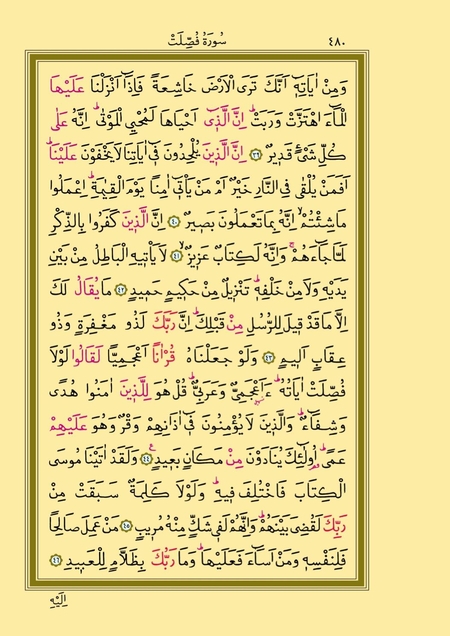 سُورَةُ فُصِّلَتْ ٤٨٠
وَمِنْ اٰيَاتِهٖٓ اَنَّكَ تَرَى الْاَرْضَ خَاشِعَةً فَاِذَٓا اَنْزَلْنَا عَلَيْهَا
الْمَٓاءَ اهْتَزَّتْ وَرَبَتْۜ اِنَّ الَّذٖٓي اَحْيَاهَا لَمُحْيِ الْمَوْتٰىۜ اِنَّهُ عَلٰى
كُلِّ شَيْءٍ قَدٖيرٌ ﴿٣٩﴾ اِنَّ الَّذٖينَ يُلْحِدُونَ فٖٓي اٰيَاتِنَا لَا يَخْفَوْنَ عَلَيْنَاۜ
اَفَمَنْ يُلْقٰى فِي النَّارِ خَيْرٌ اَمْ مَنْ يَأْتٖٓي اٰمِنًا يَوْمَ الْقِيٰمَةِۜ اِعْمَلُوا
مَا شِئْتُمْۙ اِنَّهُ بِمَا تَعْمَلُونَ بَصٖيرٌ ﴿٤٠﴾ اِنَّ الَّذٖينَ كَفَرُوا بِالذِّكْرِ
لَمَّا جَٓاءَهُمْۚ وَاِنَّهُ لَكِتَابٌ عَزٖيزٌۙ ﴿٤١﴾ لَا يَأْتٖيهِ الْبَاطِلُ مِنْ بَيْنِ
يَدَيْهِ وَلَا مِنْ خَلْفِهٖۜ تَنْزٖيلٌ مِنْ حَكٖيمٍ حَمٖيدٍ ﴿٤٢﴾ مَا يُقَالُ لَكَ
اِلَّا مَا قَدْ قٖيلَ لِلرُّسُلِ مِنْ قَبْلِكَۜ اِنَّ رَبَّكَ لَذُو مَغْفِرَةٍ وَذُو
عِقَابٍ اَلٖيمٍ ﴿٤٣﴾ وَلَوْ جَعَلْنَاهُ قُرْاٰنًا اَعْجَمِيًّا لَقَالُوا لَوْلَا
فُصِّلَتْ اٰيَاتُهُۜ ءَاَ۬عْجَمِيٌّ وَعَرَبِيٌّۜ قُلْ هُوَ لِلَّذٖينَ اٰمَنُوا هُدًى
وَشِفَٓاءٌۜ وَالَّذٖينَ لَا يُؤْمِنُونَ فٖٓي اٰذَانِهِمْ وَقْرٌ وَهُوَ عَلَيْهِمْ
عَمًىۜ اُو۬لٰٓئِكَ يُنَادَوْنَ مِنْ مَكَانٍ بَعٖيدٍ۟ ﴿٤٤﴾ وَلَقَدْ اٰتَيْنَا مُوسَى
الْكِتَابَ فَاخْتُلِفَ فٖيهِۜ وَلَوْلَا كَلِمَةٌ سَبَقَتْ مِنْ
رَبِّكَ لَقُضِيَ بَيْنَهُمْۜ وَاِنَّهُمْ لَفٖي شَكٍّ مِنْهُ مُرٖيبٍ ﴿٤٥﴾ مَنْ عَمِلَ صَالِحًا
فَلِنَفْسِهٖ وَمَنْ اَسَٓاءَ فَعَلَيْهَاۜ وَمَا رَبُّكَ بِظَلَّامٍ لِلْعَبٖيدِ ﴿٤٦﴾
اِلَيْهِ